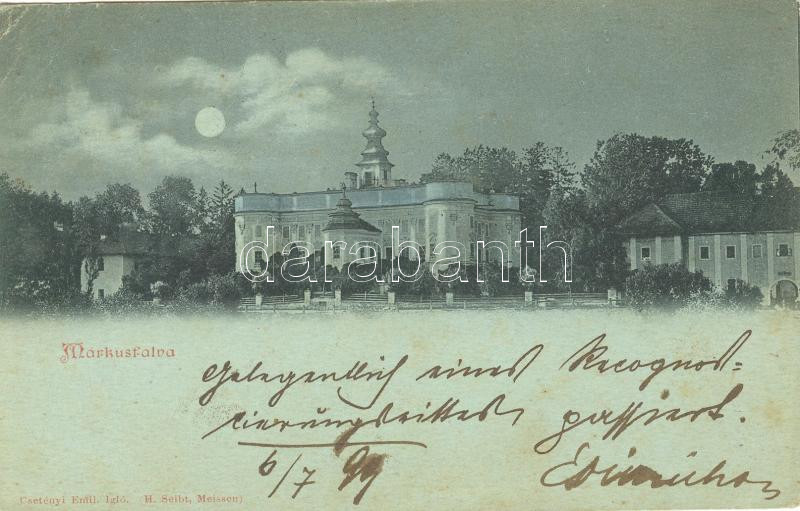 darabanth.com
Márkusfalva
Gelegentlich eines Recognos=
cierungsrittes passiert.
6/7 99
Csetényi Emil. Igló. (H. Seibt, Meissen)